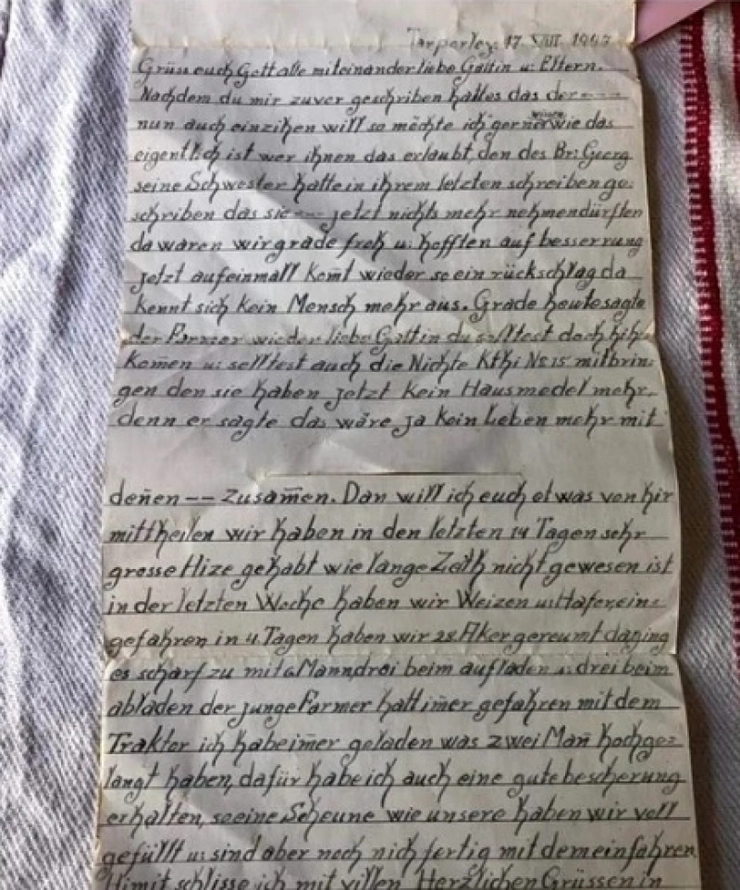 Tarporley, 17. VIII. 1947
Grüss euch Gott alle miteinander liebe Gattin u: Eltern.
Nachdem du mir zuver geschriben hattes das der ----
nun auch einzihen will so möchte ich gern wissen wie das
eigentlich ist wer ihnen das erlaubt, den des Br: Georg
seine Schwester hatte in ihrem letzten schreiben ge:
schriben das sie --- jetzt nichts mehr nehmen dürften
da waren wir grade froh u: hofften auf besserrung
jetzt aufeinmall komt wieder so ein rückschlag da
kennt sich kein Mensch mehr aus. Grade heute sagte
der Farmer wieder liebe Gattin du solltest doch hihr
kom̄en u: solltest auch die Nichte Kthi mitbrin:
gen den sie haben jetzt kein Hausmedel mehr.
denn er sagte das wäre ja kein Leben mehr mit
deñen -- zusam̄en. Dan will ich euch etwas von hir
mittheilen wir haben in den letzten 14 Tagen sehr
grosse Hize gehabt wie lange Zeith nicht gewesen ist
in der letzten Woche haben wir Weizen u: Hafer ein:
gefahren in 4 Tagen haben wir 28 Aker gereumt da ging
es scharf zu mit 6 Mann drei beim aufladen u: drei beim
abladen der junge Farmer hatt im̄er gefahren mit dem
Traktor ich habe im̄er geladen was zwei Mañ hochge:
langt haben, dafür habe ich auch eine gute bescherung
erhalten, so eine Scheune wie unsere haben wir voll
gefüllt u: sind aber noch nich fertig mit dem einfahren
Himit schlisse ich mit villen Herzlichen Grüssen in